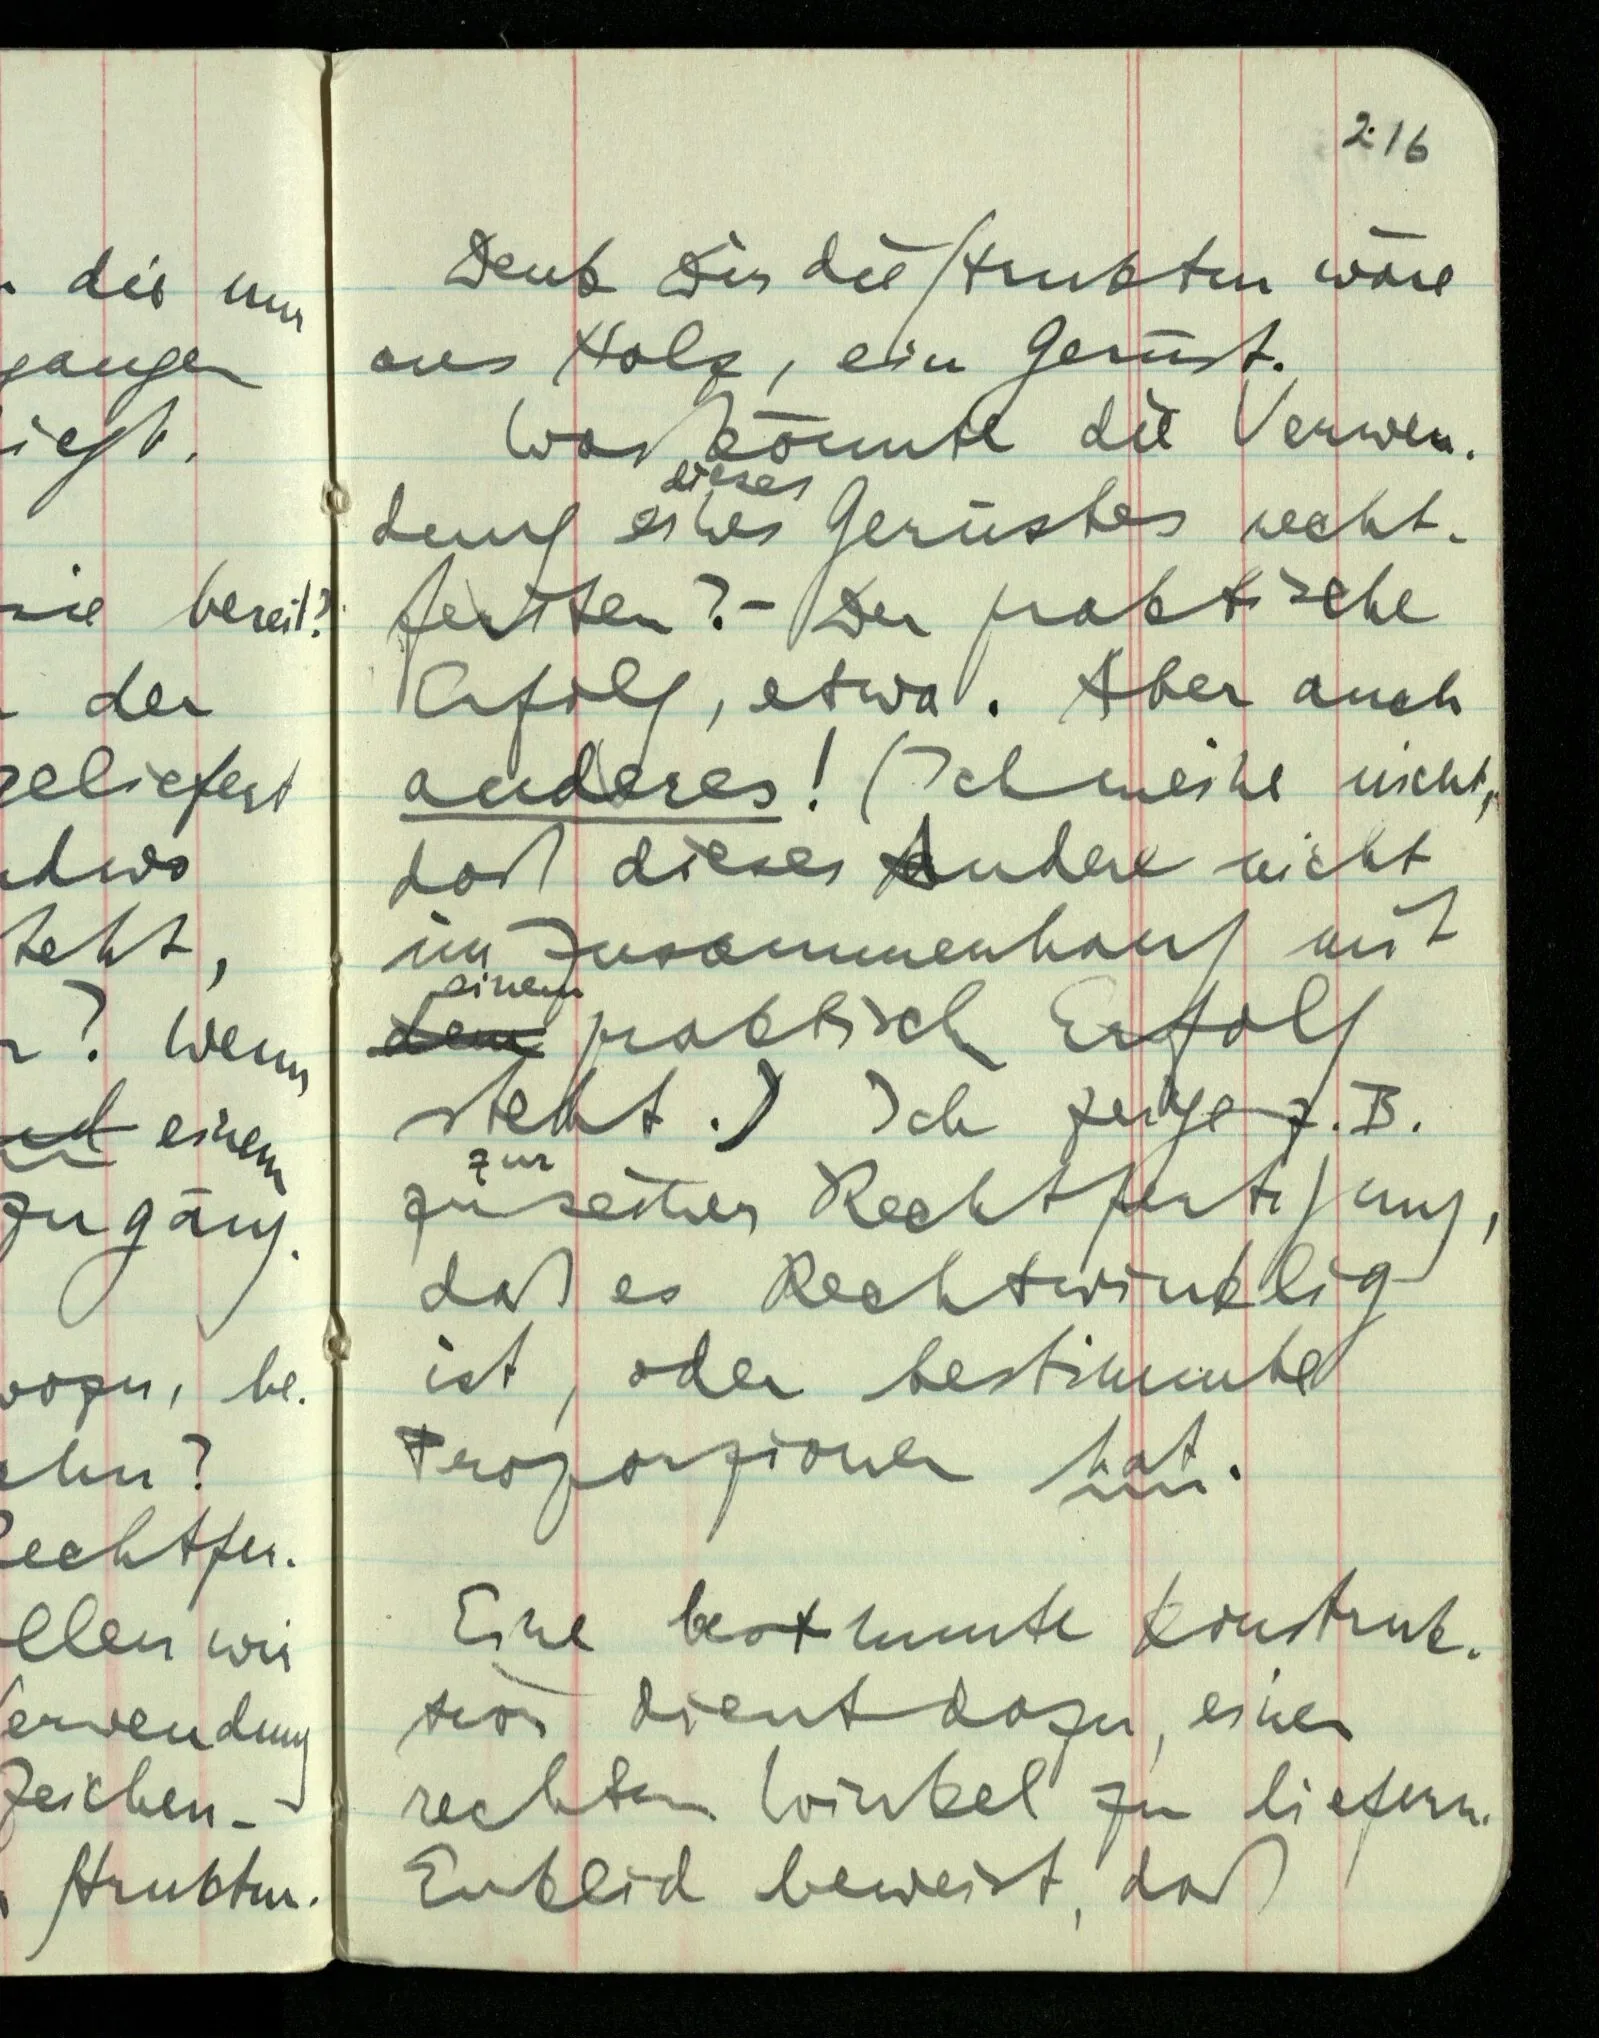 . die nur
gangen
liegt.
sie bereit?
der
geliefert
ndwo
teht,
? Wenn
einem
zugäng.
wozu, be.
ehn?
Rechtfer.
ellen wir
Verwendung
Zeichen-
Struktur.
216
Denk Dir die Struktur wäre
aus Holz, ein Gerüst.
Was könnte die Verwen-
dieses
dung eines Gerüstes recht-
fertiten? – Der praktische
Erfolg, etwa. Aber auch
anderes! (Ich meine nicht,
daß dieses Andere nicht
im Zusammenhang mit
einem
dem praktisch Erfolg
steht.) Ich zeige z.B.
zur
zu seiner Rechtfertigung,
daß es Rechtwinklig
ist, oder bestimmte
Proporzionen hat.
Eine bestimmte Konstruk-
tion dient dazu, einen
rechten Winkel zu liefern.
Euklid beweist, daß